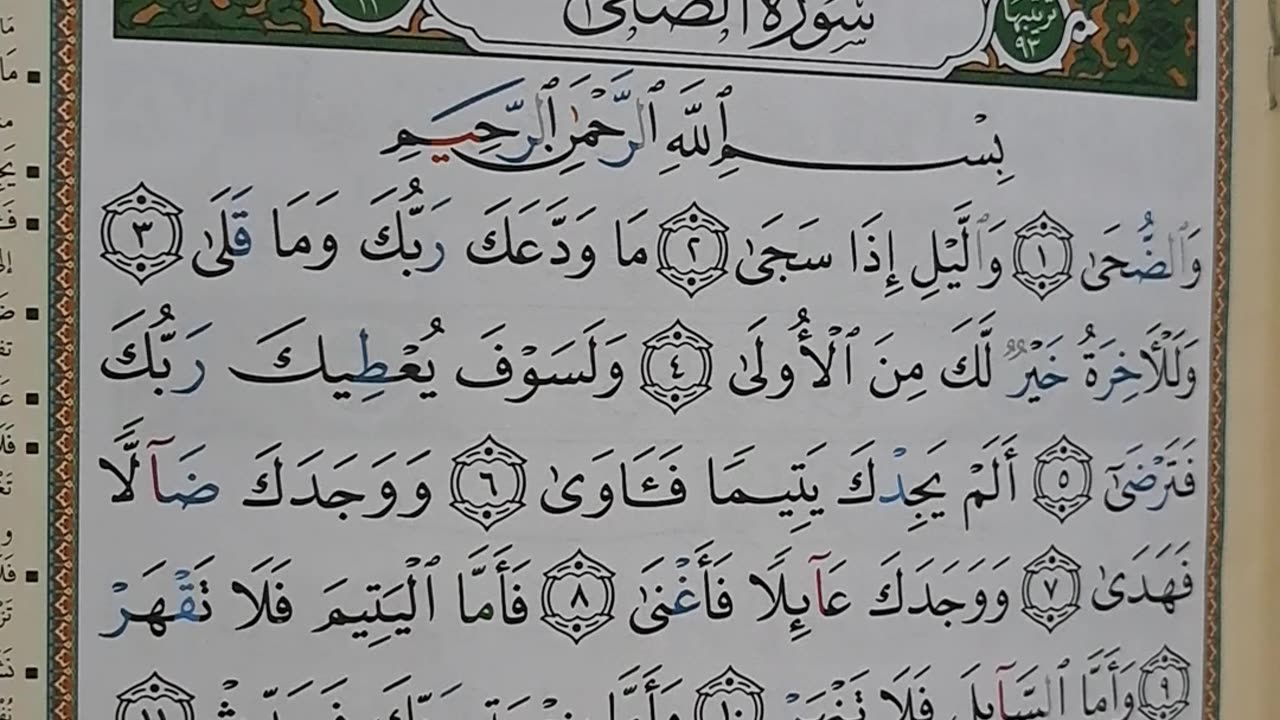 سورة الضحى
ترتيبها ٩٣
بِسْمِ ٱللَّهِ ٱلرَّحْمَٰنِ ٱلرَّحِيمِ
وَٱلضُّحَىٰ ١ وَٱلَّيْلِ إِذَا سَجَىٰ ٢ مَا وَدَّعَكَ رَبُّكَ وَمَا قَلَىٰ ٣
وَلَلْأٓخِرَةُ خَيْرٌ لَّكَ مِنَ ٱلْأُولَىٰ ٤ وَلَسَوْفَ يُعْطِيكَ رَبُّكَ
فَتَرْضَىٰٓ ٥ أَلَمْ يَجِدْكَ يَتِيمًا فَـَٔاوَىٰ ٦ وَوَجَدَكَ ضَآلًّا
فَهَدَىٰ ٧ وَوَجَدَكَ عَآئِلًا فَأَغْنَىٰ ٨ فَأَمَّا ٱلْيَتِيمَ فَلَا تَقْهَرْ
٩ وَأَمَّا ٱلسَّآئِلَ فَلَا تَنْهَرْ ١٠ وَأَمَّا بِنِعْمَةِ رَبِّكَ فَحَدِّثْ ١١